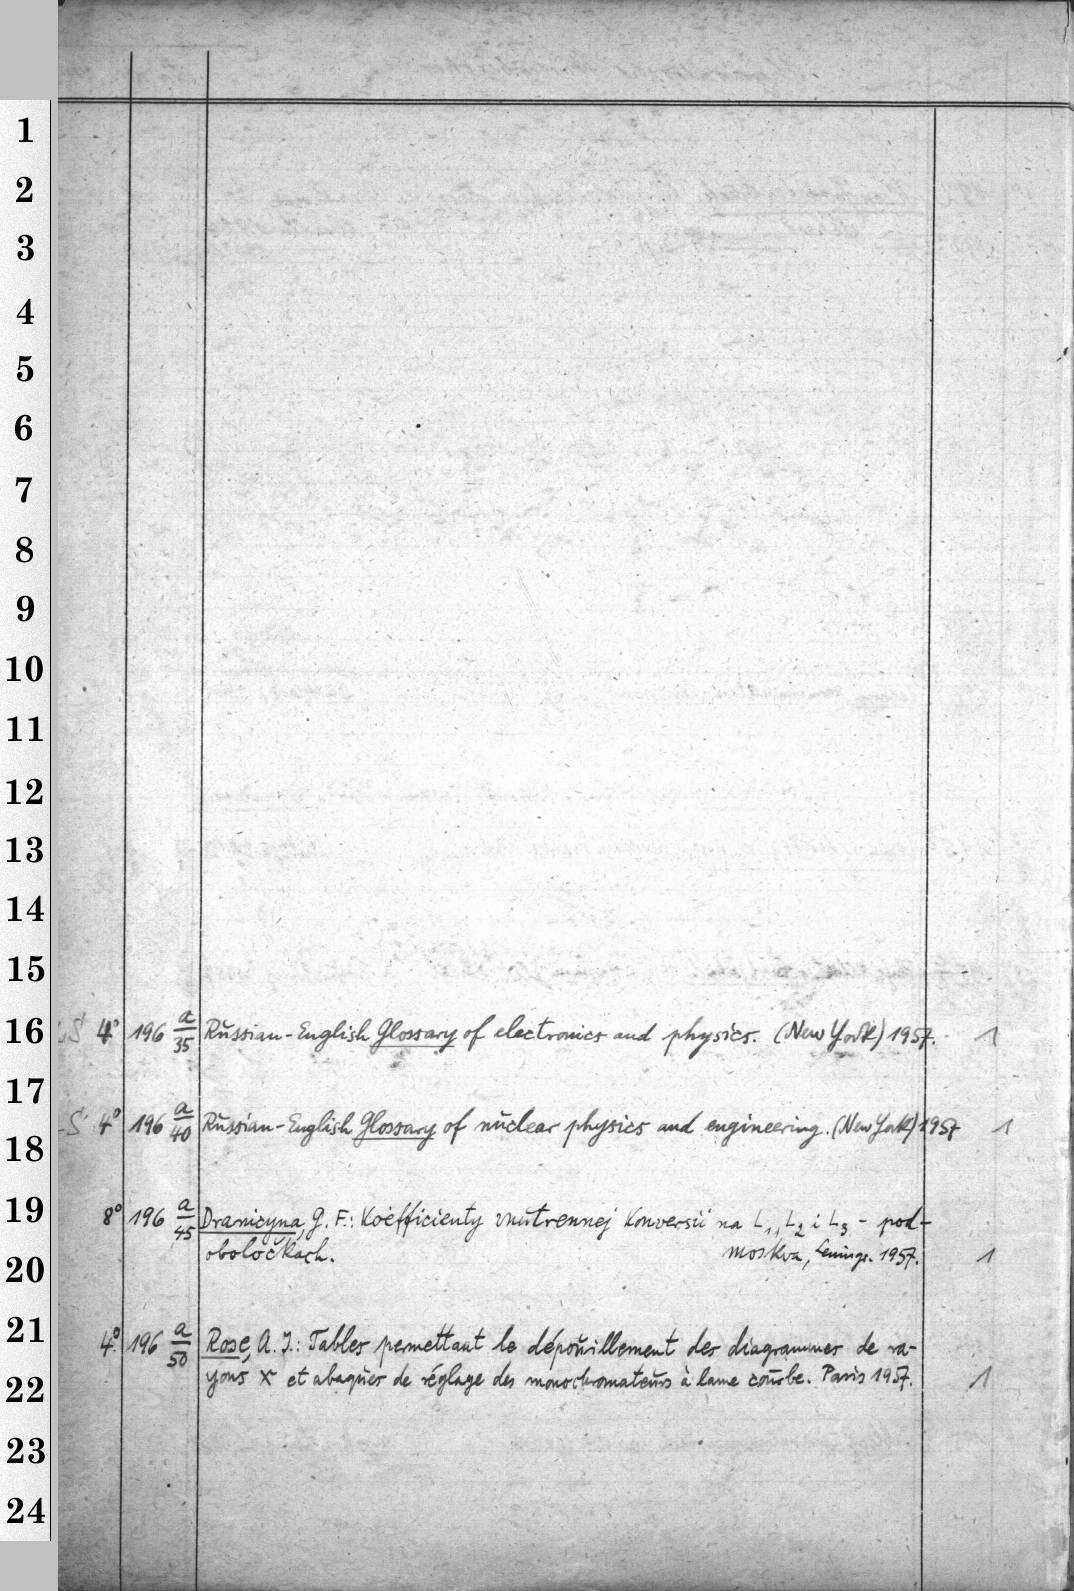 1
2
3
4
5
6
7
8
9
10
11
12
13
14
15
16 LS 4° 196 a/35 Russian-English Glossary of electronics and physics. (New York) 1957. 1
17
LS 4° 196 a/40 Russian-English Glossary of nuclear physics and engineering. (New York) 1957 1
18
19 8° 196 a/45 Dranicyna, G. F.: Koėfficienty vnutrennej konversii na L1, L2 i L3 - pod-
20 oboločkach. Moskva, Leningr. 1957. 1
21 4° 196 a/50 Rose, A. J.: Tables pemettant le dépouillement des diagrammes de ra-
22 yons X et abaques de réglage des monochromateurs à lame courbe. Paris 1957. 1
23
24